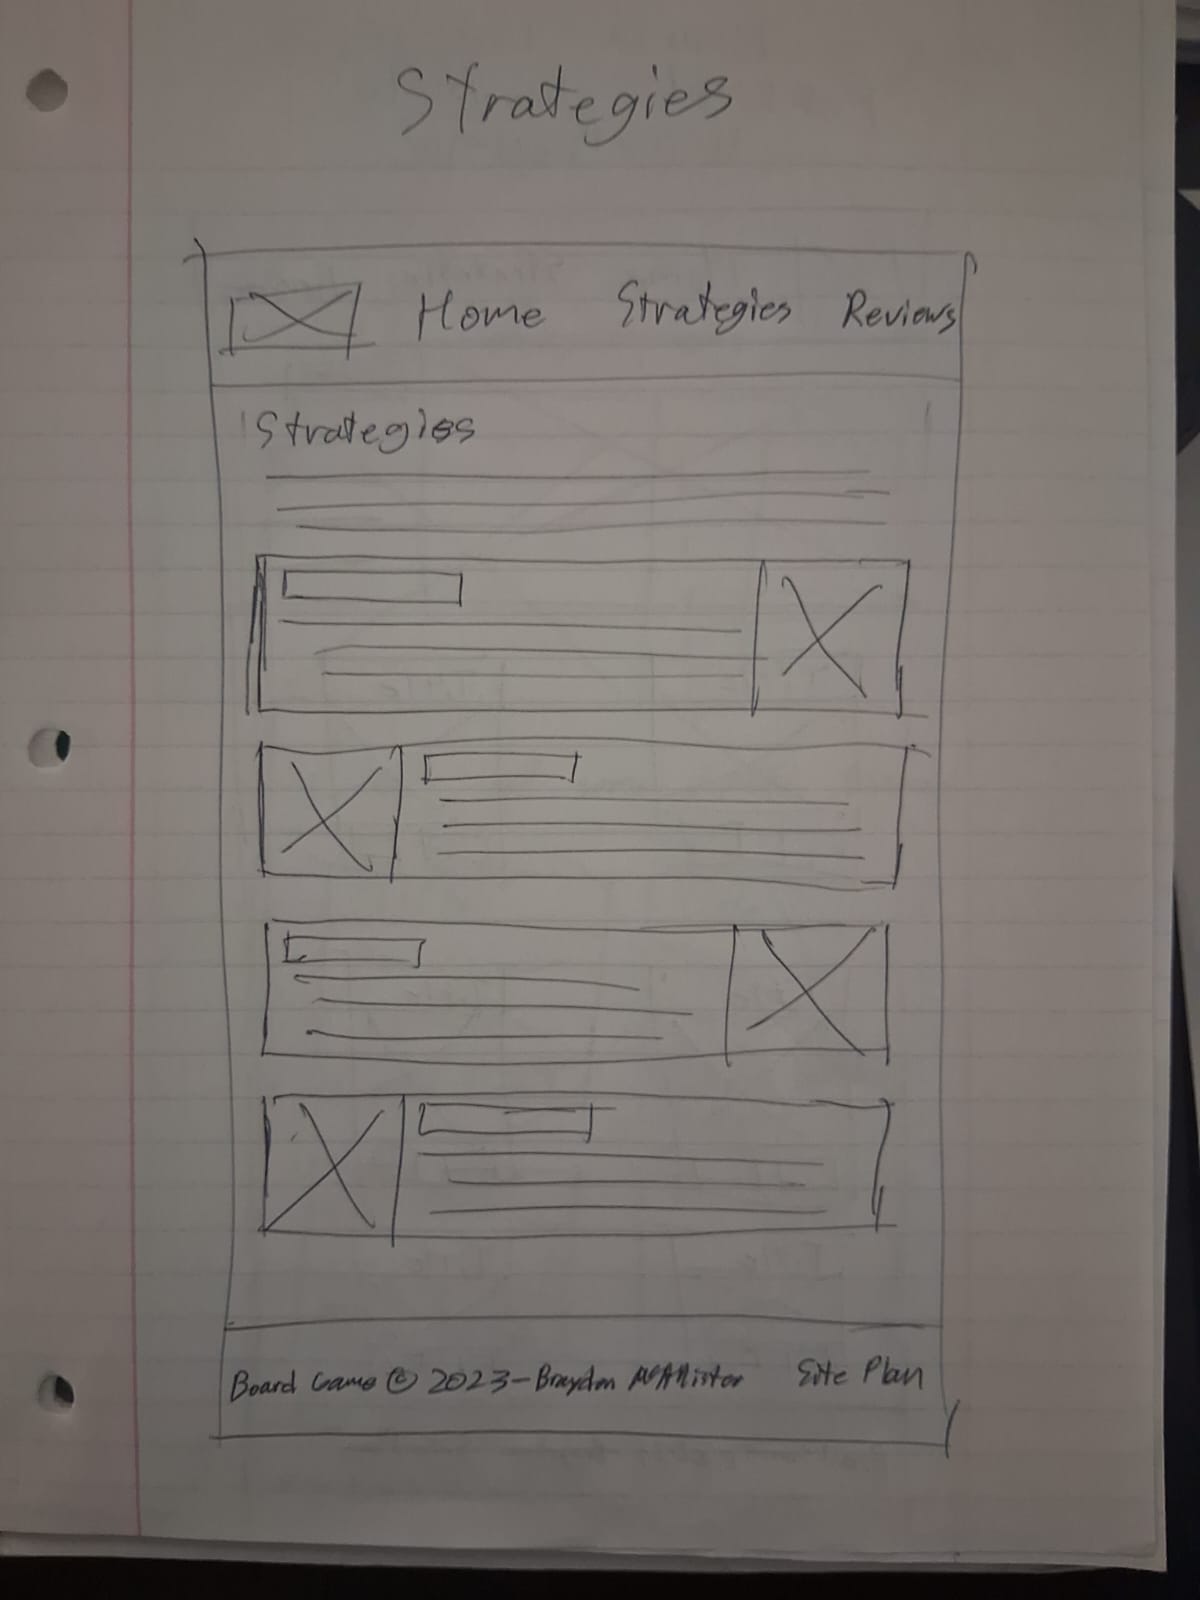 Strategies
Home Strategies Reviews
Strategies
Board Game © 2023 - Braydon McAllister Site Plan